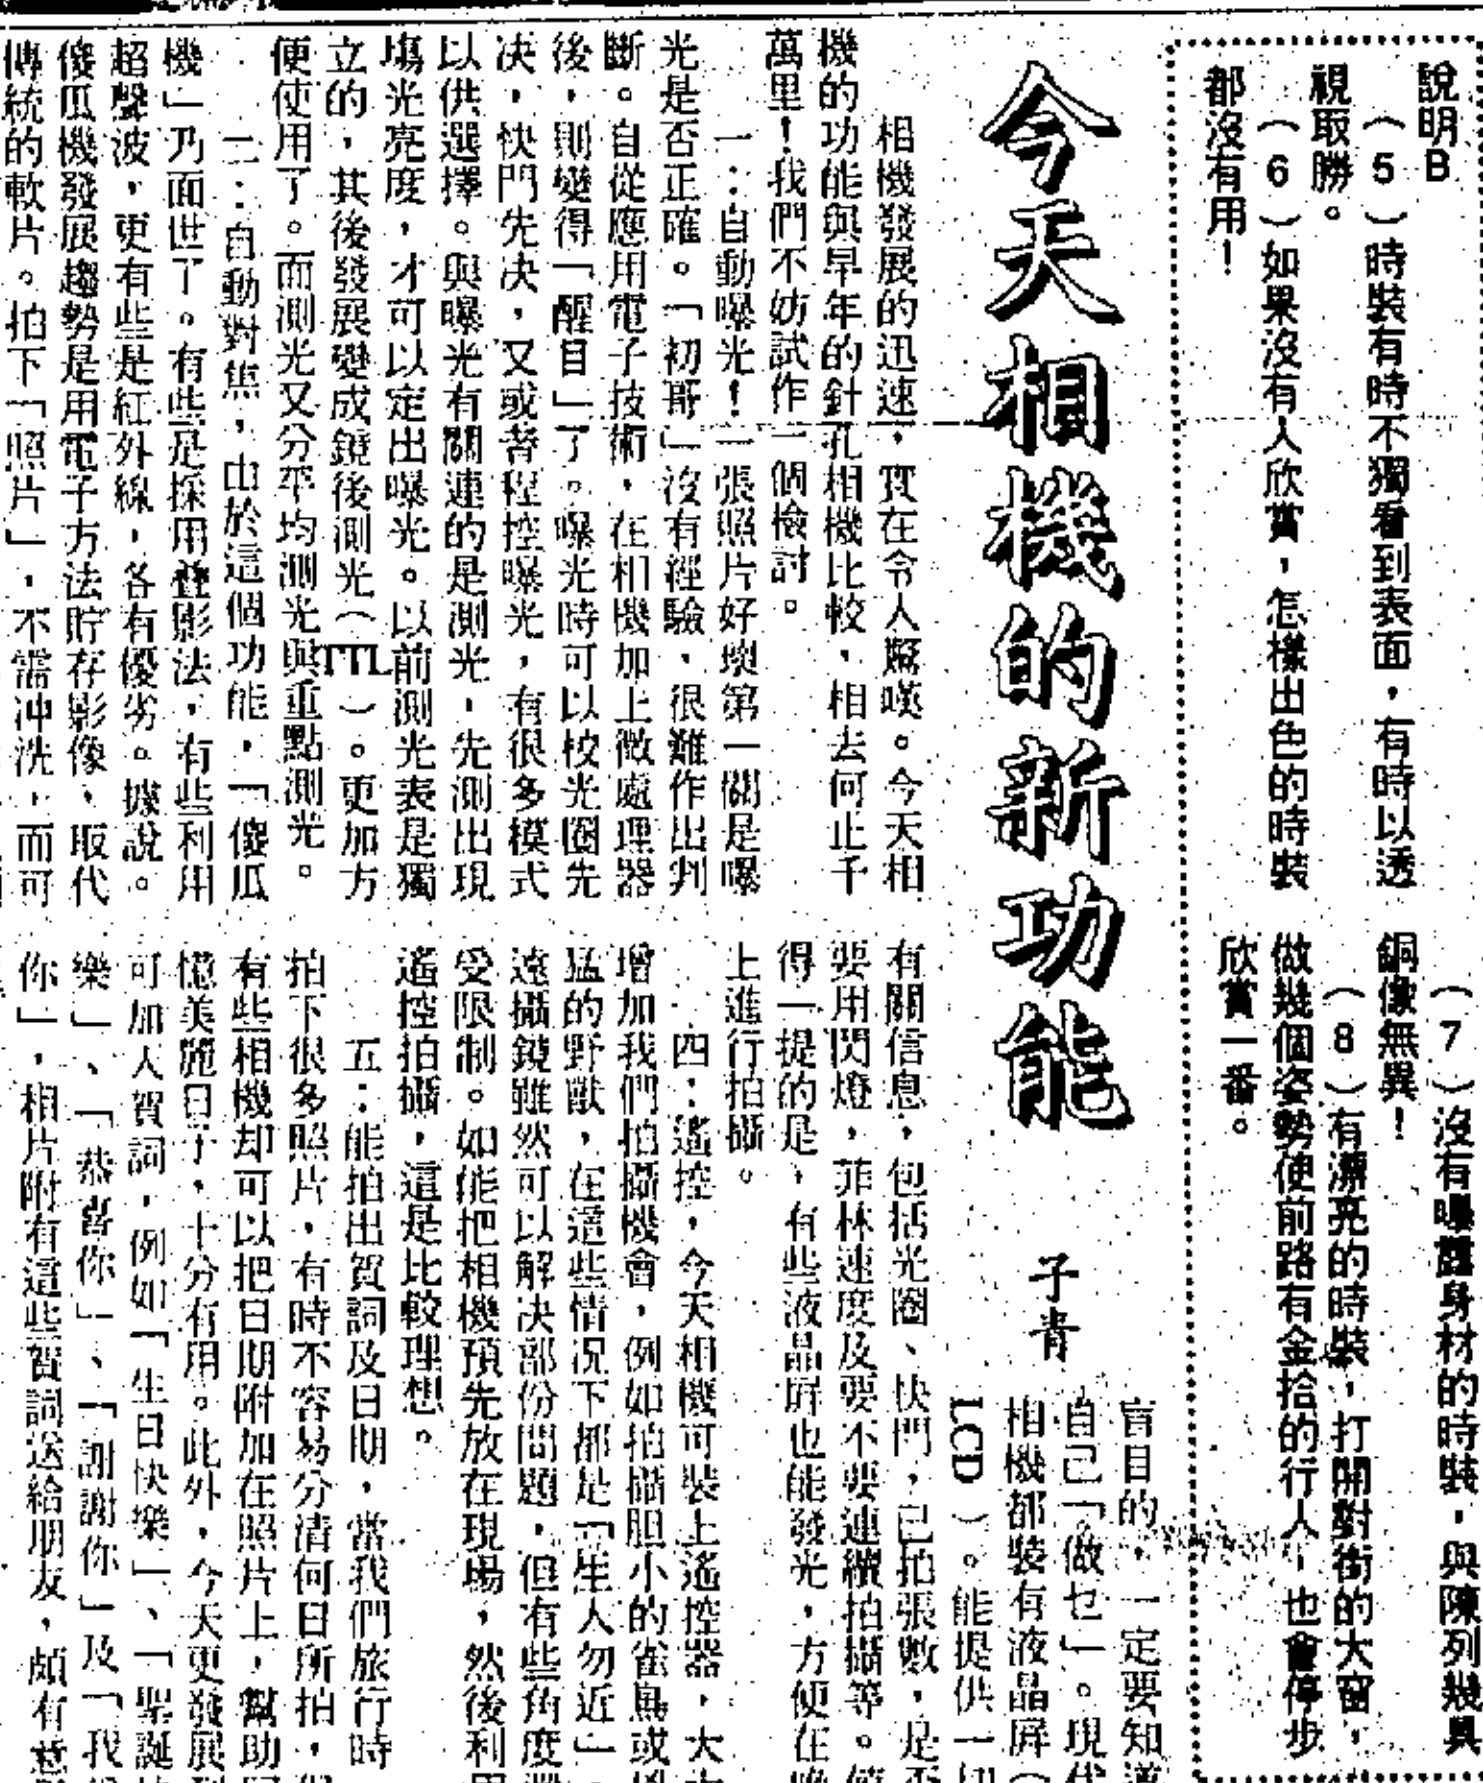 說明B
（5）時裝有時不獨看到表面，有時以透
視取勝。
（6）如果沒有人欣賞，怎樣出色的時裝
都沒有用！
（7）沒有曝露身材的時裝，與陳列幾具
銅像無異！
（8）有漂亮的時裝，打開對街的大窗，
做幾個姿勢使前路有金拾的行人，也會停步
欣賞一番。
今天相機的新功能
子青
相機發展的迅速，實在令人驚嘆。今天相
機的功能與早年的針孔相機比較，相去何止千
萬里！我們不妨試作一個檢討。
一：自動曝光！一張照片好壞第一關是曝
光是否正確。「初哥」沒有經驗，很難作出判
斷。自從應用電子技術，在相機加上微處理器
後，則變得「醒目」了。曝光時可以校光圈先
决，快門先决，又或者程控曝光，有很多模式
以供選擇。與曝光有關連的是測光，先測出現
塲光亮度，才可以定出曝光。以前測光表是獨
立的，其後發展變成鏡後測光（TTL）。更加方
便使用了。而測光又分平均測光與重點測光。
二：自動對焦，由於這個功能，「傻瓜
機」乃面世了。有些是採用叠影法，有些利用
超聲波，更有些是紅外線，各有優劣。據說。
傻瓜機發展趨勢是用電子方法貯存影像，取代
傳統的軟片。拍下「照片」，不需冲洗，而可
盲目的，一定要知道
自己「做乜」。現代
相機都裝有液晶屏（
LCD）。能提供一切
有關信息，包括光圈、快門，已拍張數，是否
要用閃燈，菲林速度及要不要連續拍攝等。值
得一提的是，有些液晶屏也能發光，方便在晚
上進行拍攝。
四：遙控，今天相機可裝上遙控器，大大
增加我們拍攝機會，例如拍攝胆小的雀鳥或
猛的野獸，在這些情况下都是「生人勿近」，
遠攝鏡雖然可以解决部份問題，但有些角度
受限制。如能把相機預先放在現場，然後利用
遙控拍攝，這是比較理想。
五：能拍出賀詞及日期，當我們旅行時
拍下很多照片，有時不容易分清何日所拍，
有些相機却可以把日期附加在照片上，幫助
憶美麗日子，十分有用。此外，今天更發展
可加入賀詞，例如「生日快樂」、「聖誕
樂」、「恭喜你」、「謝謝你」及「我
你」，相片附有這些賀詞送給朋友，頗有意